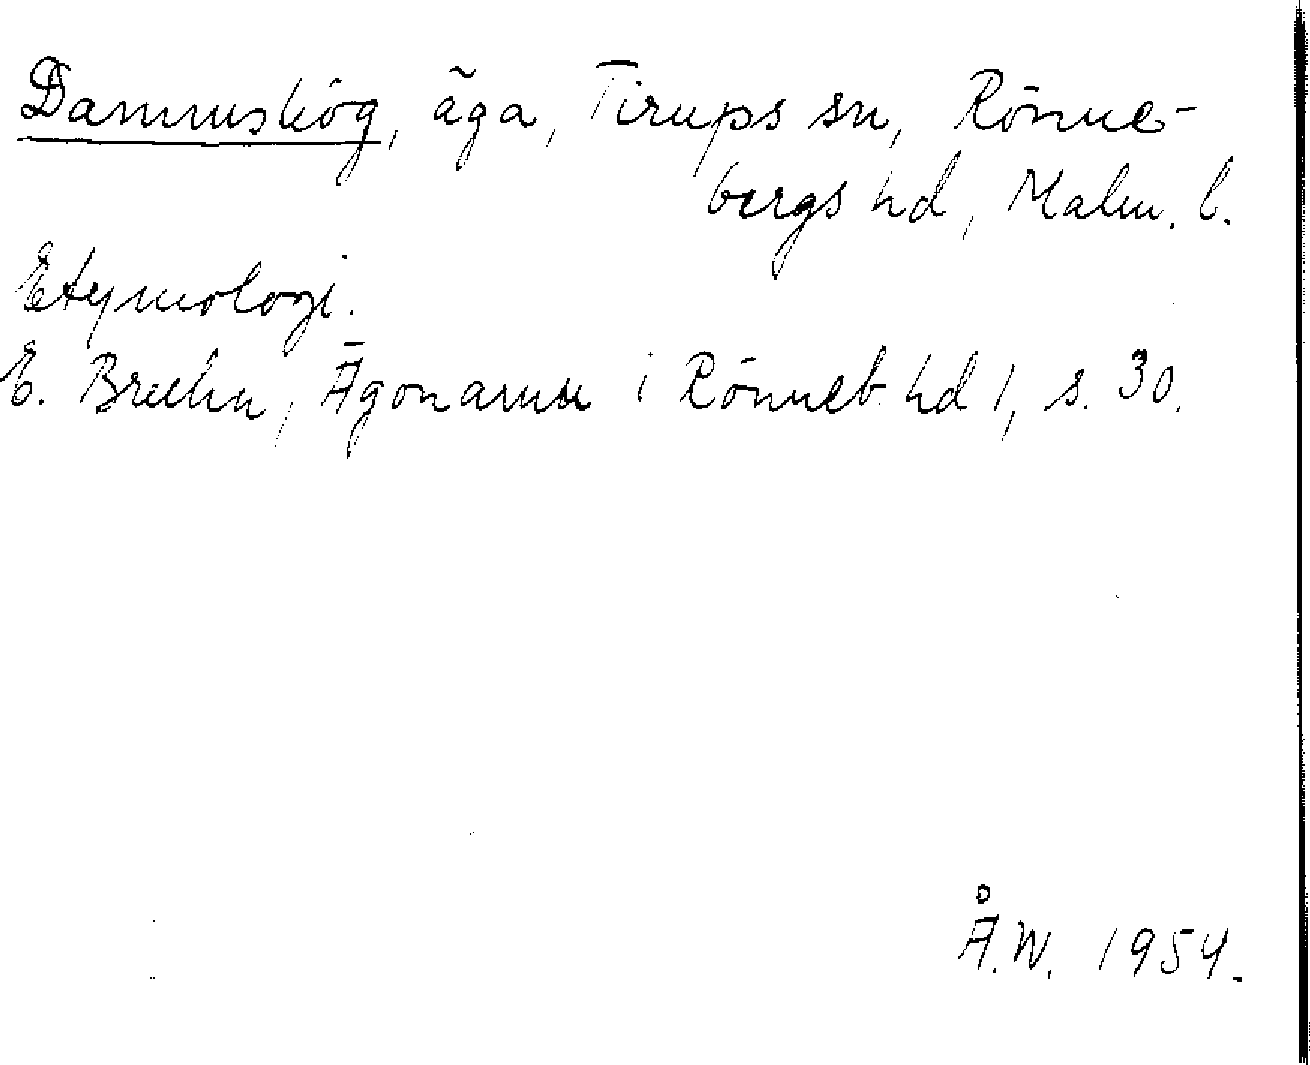 Dammshög, äga, Tirups sn, Rönne-
bergs hd, Malm. l.
Etymologi.
E. Bruhn, Ägonamn i Rönneb. hd 1, s. 30.
Å.W. 1954.